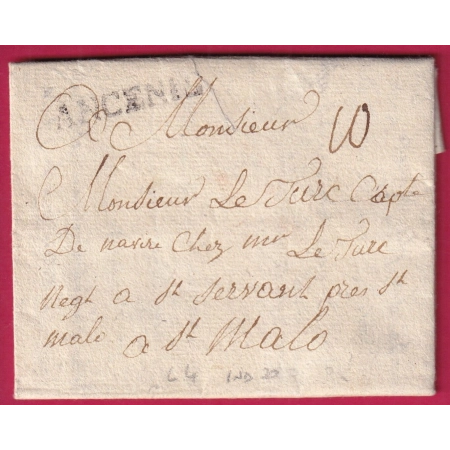 ANCENIS
A Monsieur
10
Monsieur Le Turc Capte
De navire Chez mr Le Turc
Negt a St Servant pres St
malo a St Malo
L 4 IND 20